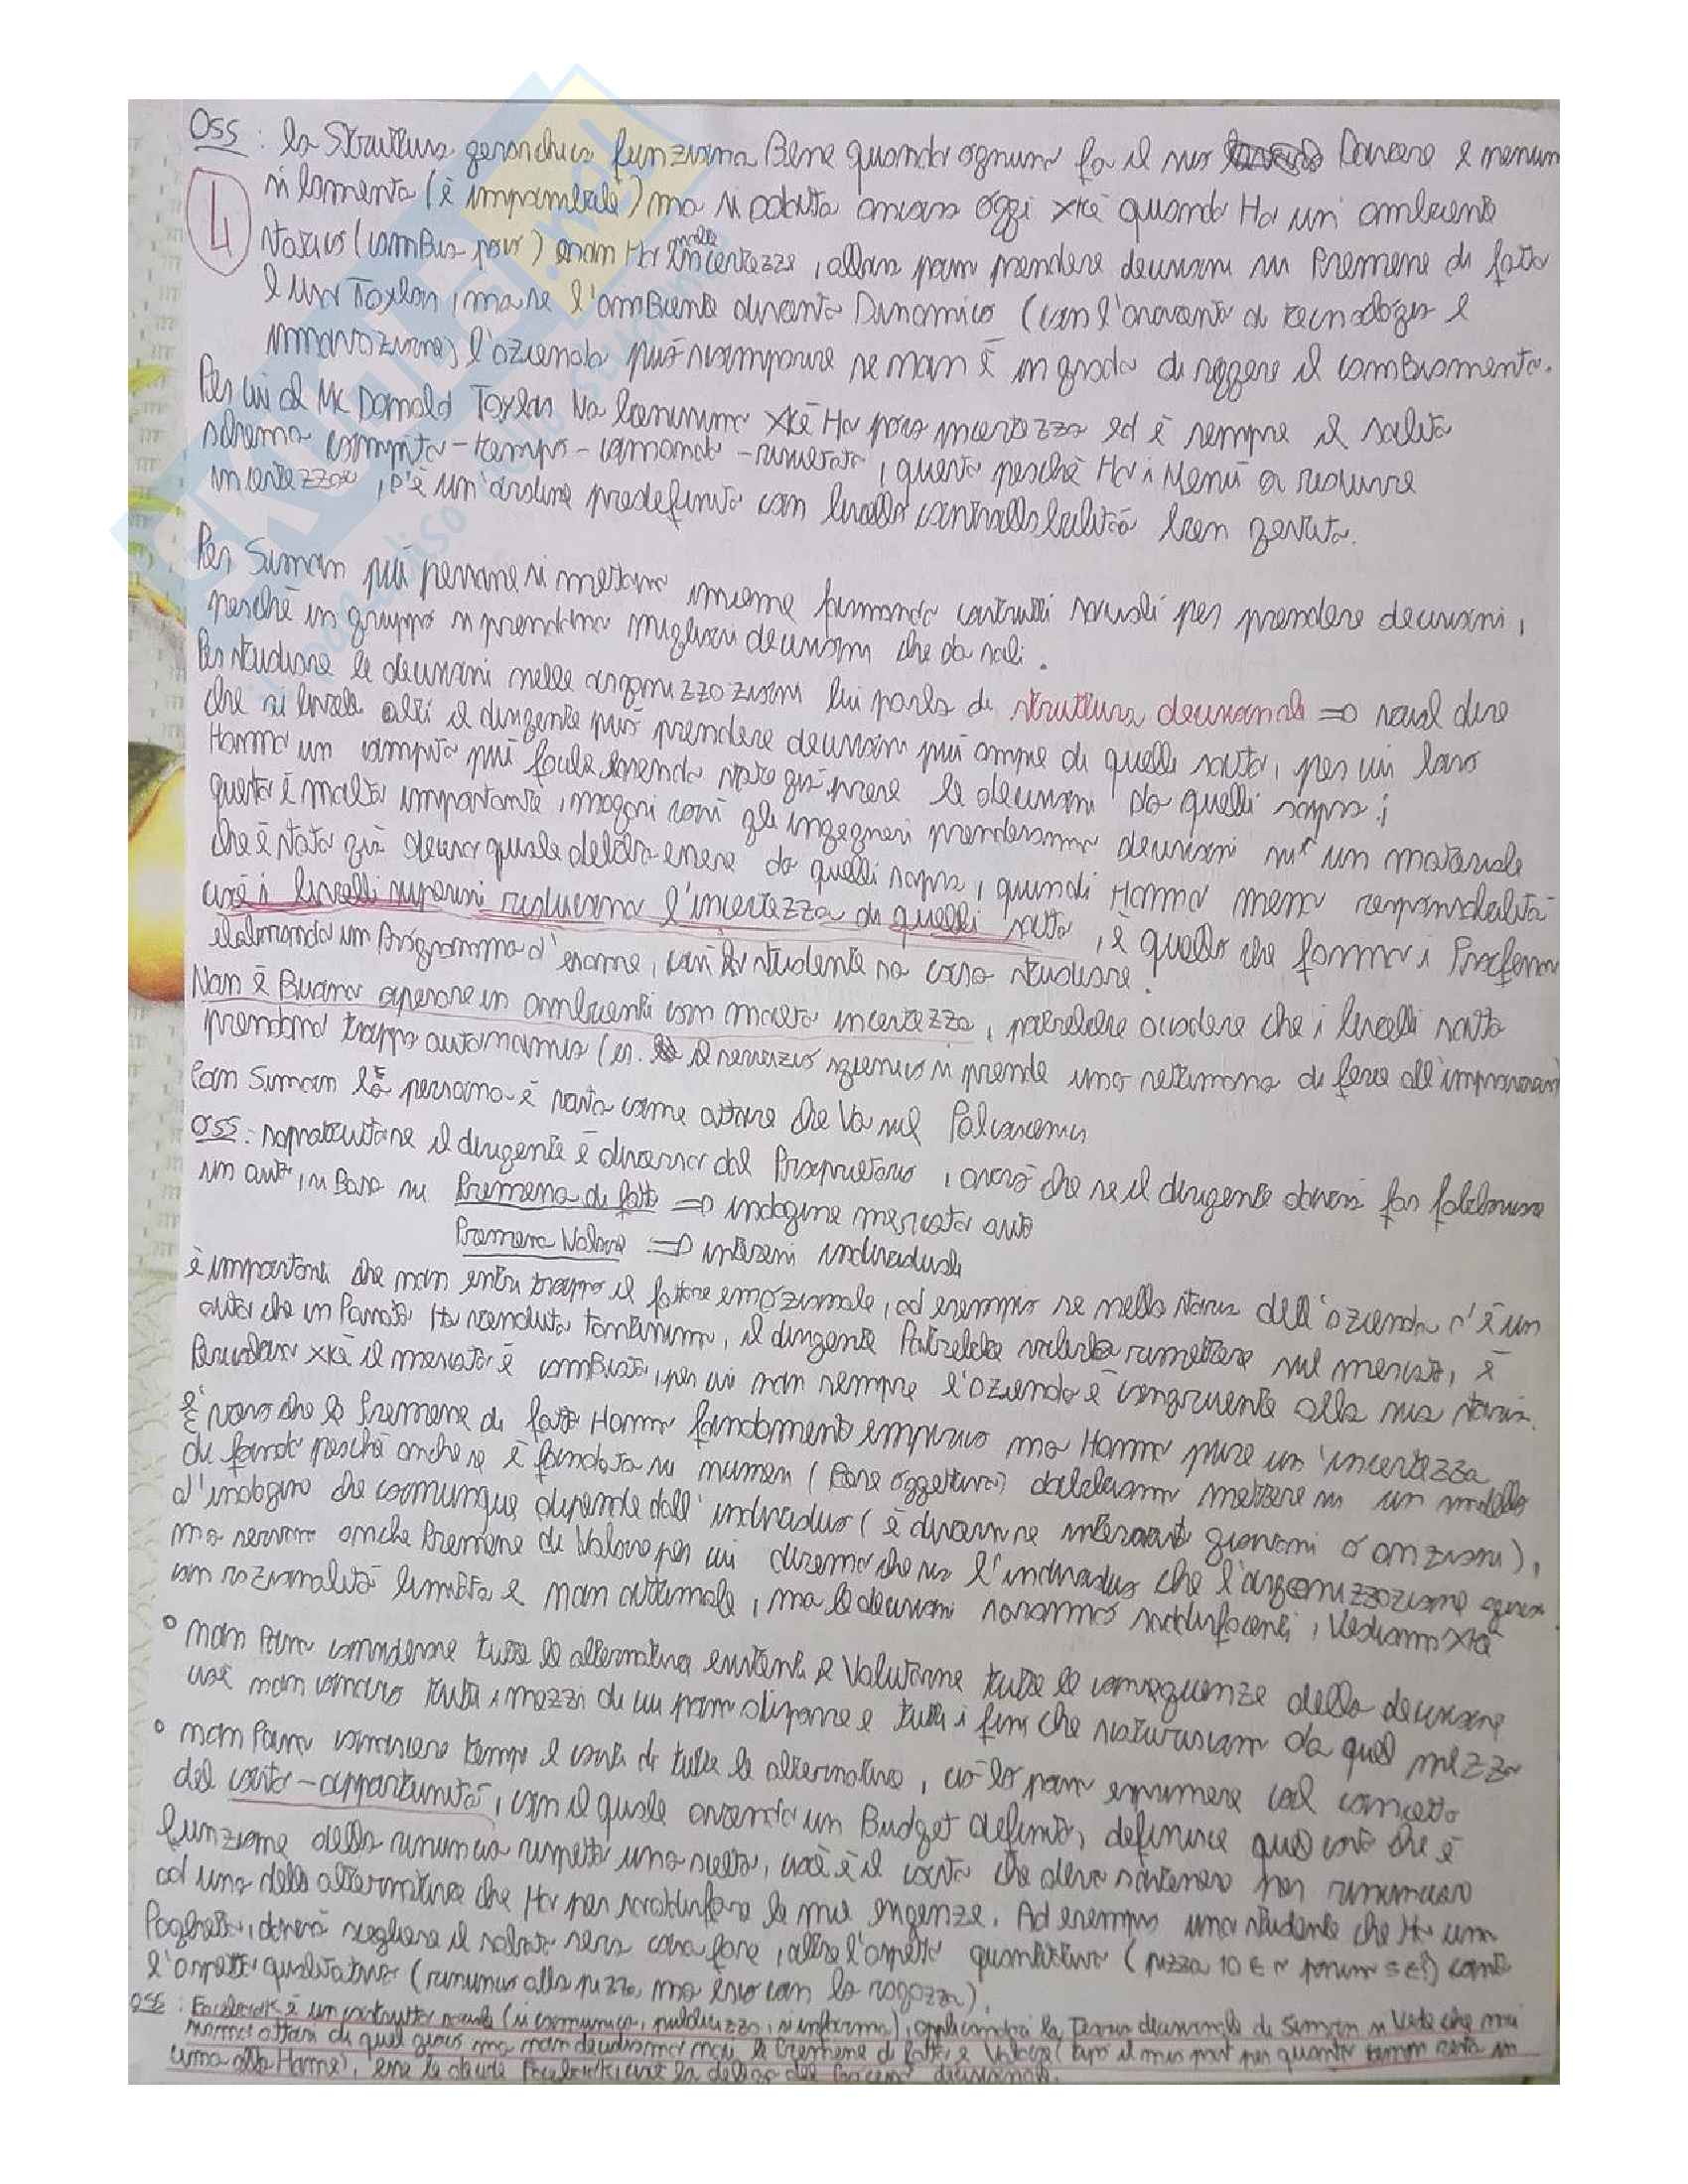 Oss: la struttura gerarchica funziona Bene quando ognuno fa il suo Dovere e nessuno
4
si lamenta (è impossibile) ma si adotta ancora oggi xkè quando Ho un ambiente
statico (cambia poco) e non Ho molte incertezze, allora posso prendere decisioni su Premesse di fatto
e uso Taylor, ma se l'ambiente diventa Dinamico (con l'avvento di tecnologia e
innovazione) l'azienda può scomparire se non è in grado di reggere il cambiamento.
Per cui al Mc Donald Taylor va benissimo xkè Ho poca incertezza ed è sempre il solito
schema compito-tempo-comando-risultato, questo perchè Ho i Menù a ridurre
incertezza, c'è un'ordine predefinito con livello controllabilità ben gestito.
Per Simon più persone si mettono insieme formando costrutti sociali per prendere decisioni,
perchè in gruppo si prendono migliori decisioni che da soli.
Per studiare le decisioni nelle organizzazioni lui parla di struttura decisionale => vuol dire
che ai livelli alti il dirigente può prendere decisioni più ampie di quelli sotto, per cui loro
Hanno un compito più facile essendo state già prese le decisioni da quelli sopra;
questo è molto importante, magari così gli ingegneri prenderanno decisioni su un materiale
che è stato già deciso quale debba essere da quelli sopra, quindi Hanno meno responsabilità
cioè i livelli superiori riducono l'incertezza di quelli sotto, è quello che fanno i Professori
elaborando un Programma d'esame, così lo studente sa cosa studiare.
Non è Buono operare in ambienti con molta incertezza, potrebbe accadere che i livelli sotto
prendano troppa autonomia (es. il servizio igienico si prende una settimana di ferie all'improvviso)
Con Simon la persona è vista come attore che va sul Palcoscenico
Oss: sopratutto se il dirigente è diverso dal Proprietario, avrò che se il dirigente dovrà far fabbricare
un auto, si basa su Premessa di fatto => indagine mercato auto
Premessa Valore => interessi individuali
è importante che non entri troppo il fattore emozionale, ad esempio se nella storia dell'azienda c'è un
auto che in Passato Ha venduto tantissimo, il dirigente Potrebbe volerla rimettere sul mercato, è
Pericoloso xkè il mercato è cambiato, per cui non sempre l'azienda è congruente alla sua storia.
E' vero che le Premesse di fatto Hanno fondamento empirico ma Hanno pure un'incertezza
di fondo perchè anche se è fondata su numeri (base oggettiva) dobbiamo mettere su un modello
d'indagine che comunque dipende dall'individuo (è diverso se intervisto giovani o anziani),
ma servono anche Premesse di Valore per cui diremo che sia l'individuo che l'organizzazione agisce
con razionalità limitata e non ottimale, ma le decisioni saranno soddisfacenti, Vediamo xkè
° non Posso considerare tutte le alternative esistenti e Valutarne tutte le conseguenze della decisione
cioè non conosco tutti i mezzi di cui posso disporre e tutti i fini che scaturiscono da quel mezzo
° non Posso conoscere tempi e costi di tutte le alternative, ciò lo posso esprimere col concetto
del costo-opportunità, con il quale avendo un Budget definito, definisce quel costo che è
funzione della rinuncia rispetto una scelta, cioè è il costo che devo sostenere per rinunciare
ad una delle alternative che Ho per soddisfare le mie esigenze. Ad esempio uno studente che Ha una
Paghetta, dovrà scegliere il sabato sera cosa fare, oltre l'aspetto quantitativo (pizza 10€ o panino 5€?) conta
l'aspetto qualitativo (rinuncio alla pizza, ma esco con la ragazza).
Oss: Facebook è un costrutto sociale (si comunica, pubblicizza, si informa), applicando la Teoria decisionale di Simon si Vede che noi
siamo attori di quel gioco ma non decidiamo noi le Premesse di fatto e Valore (tipo il mio post per quanto tempo resta in
cima alla Home), ma le decide Facebook, cioè la delega del Processo decisionale.